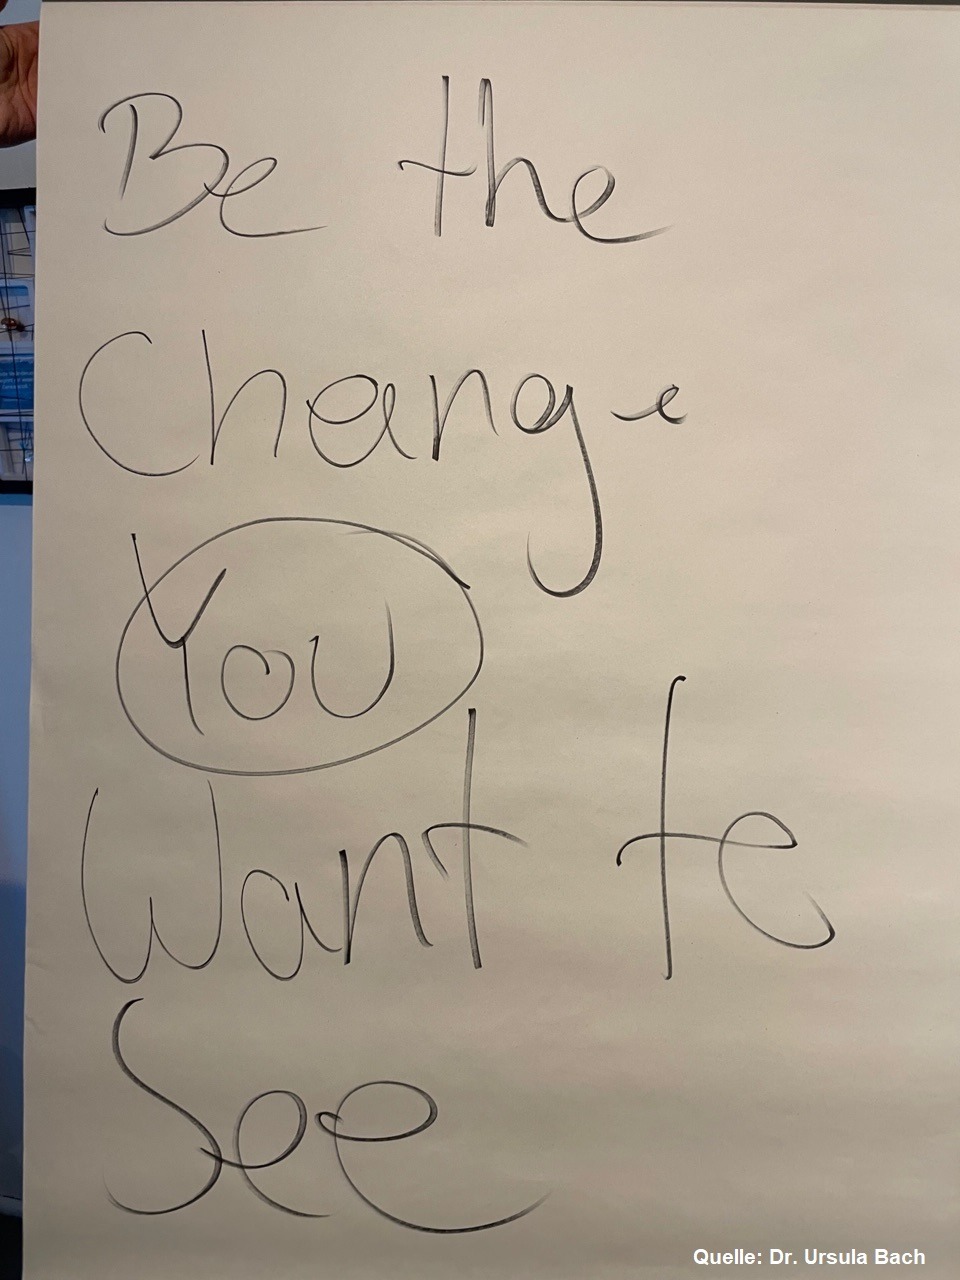 Be the
Change
You
Want te
See
Quelle: Dr. Ursula Bach